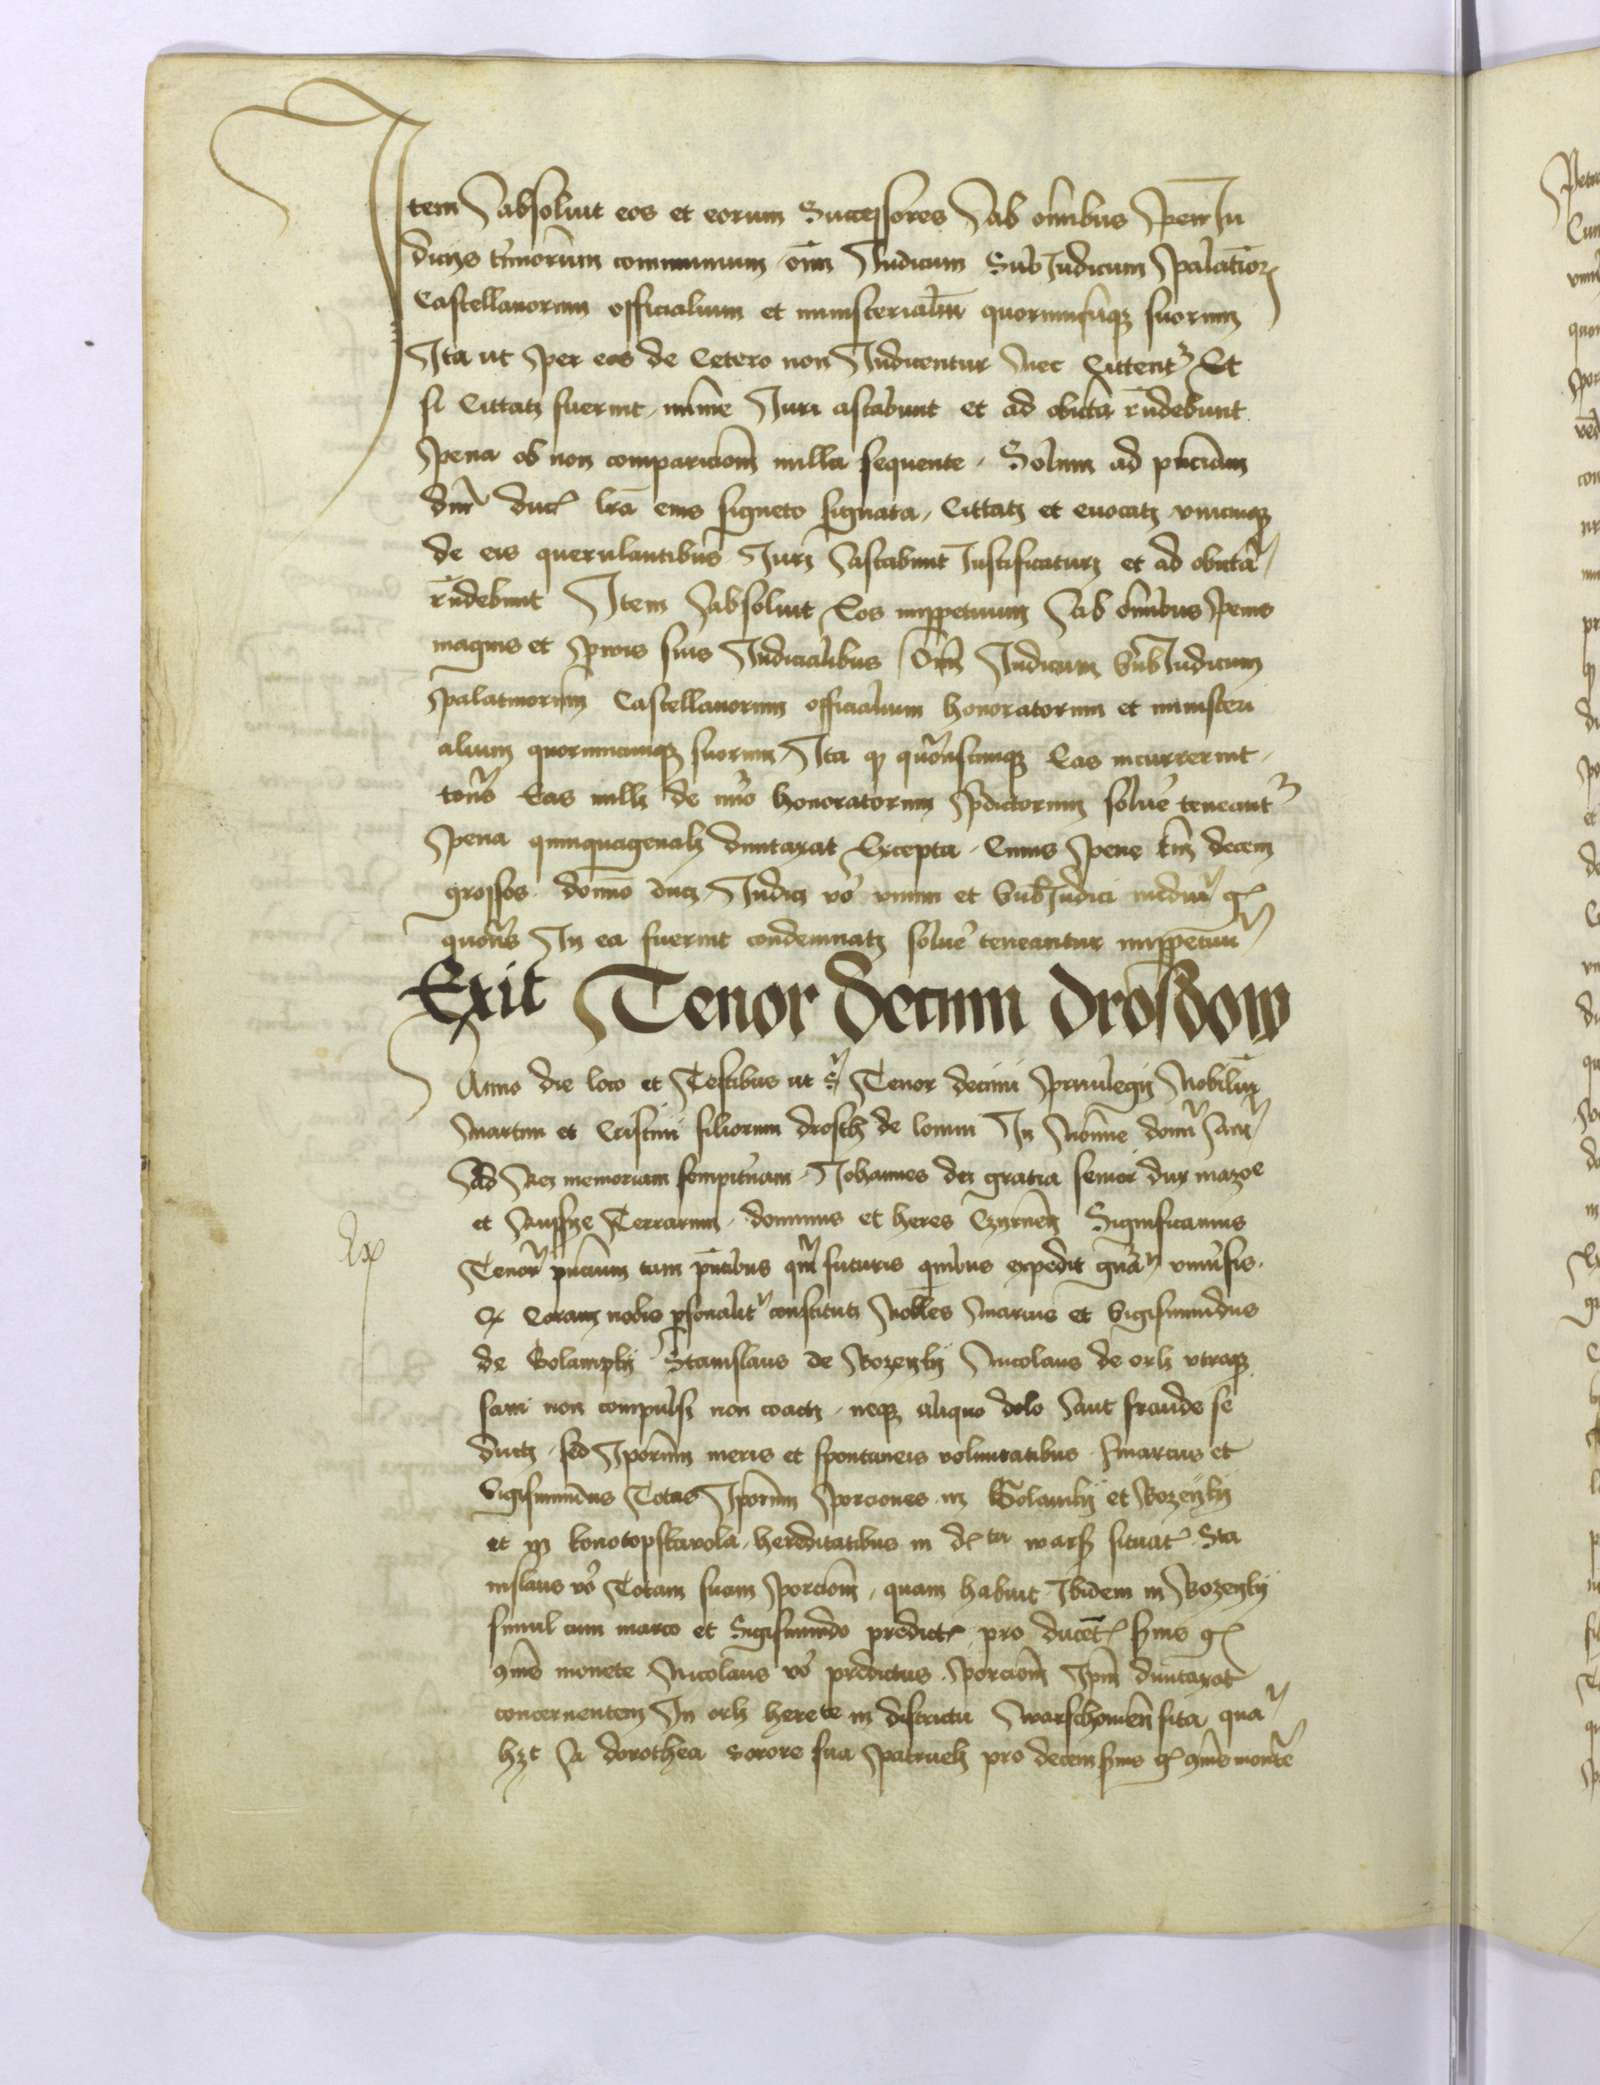 Item absoluit eos et eorum Successores ab om̄ibus penit Iu
dicijs tm̄orum communium om̄ Iudicum SubIudicum palatīor
Castellanorum officialium et ministerialiū quorumcūq suorum
Ita ut per eos de Cetero non Iudicentur nec Cittent Et
si Cittati fuerint mīme Iuri astabunt et ad obiecta r̄ndebunt
pena ob non comparicionē nulla sequente Solum ad pn̄ciam
dn̄i ducis lr̄a eius signeto signata Cittati et euocati vnicuiq
de eis querulantibus Iuri astabunt Iustificaturi et ad obiecta
r̄ndebunt Item absoluit Eos inperpetuum ab om̄ibus penis
magnis et paruis suis Iudicialibus Om̄ Iudicum SubIudicum
palatinorum Castellanorum officialium honoratorum et ministeri
alium quorumcumq suorum Ita q quocienscumq Eas incurrerint
tociens Eas nulli de nūo honoratorum pdictorum soluere teneant
pena quinquagenali duntaxat Excepta Cuius pene tm̄ decem
grossos domino duci Iudici vo vnum et SubIudici mediū g
quociens In ea fuerint condemnati soluere teneantur inperpetuū
Exit Tenor decimi drosdow
Anno die loco et Testibus ut s Tenor decimi priuilegij Nobiliū
Martini et Cristini filiorum drosth de lomin In Nomine domī am̄
Ad Rei memoriam sempiternam Iohannes dei gratia senior dux mazoe
et Russye Terrarum dominus et heres Czyrnen Significamus
Tenore pn̄cium tam pn̄tibus qm̄ futuris quibus expedit gn̄a vniuersis
Ex
q Coram nobis personalit constituti Nobiles Marcus et Sigismundus
de Golampky Stanislaus de Rozenky Nicolaus de orly vtraq
sani non compulsi non coacti neq aliquo dolo aut fraude se
ducti sed Ipsorum meris et spontaneis voluntatibus Marcus et
Sigismundus Totas Ipsorum porciones in Golamky et Rozenky
et in konotopskavola hereditatibus in dctu warss situat Sta
nislaus vo Totam suam porcionē quam habuit Ibidem in Rozenky
simul cum marco et Sigismundo predict pro ducet sxms g
9mis monete Nicolaus vo predictus porcionē Ipm̄ duntaxat
concernentem In orly herete in districtu warschouien sita qua
hzt a dorothea sorore sua patrueli pro decem sxms g 9mis monete